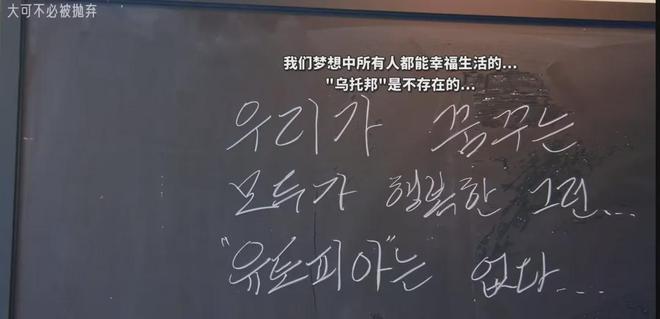 大可不必被抛弃
我们梦想中所有人都能幸福生活的...
"乌托邦"是不存在的...
우리가 꿈꾸는
모두가 행복한 그런...
"유토피아"는 없다...